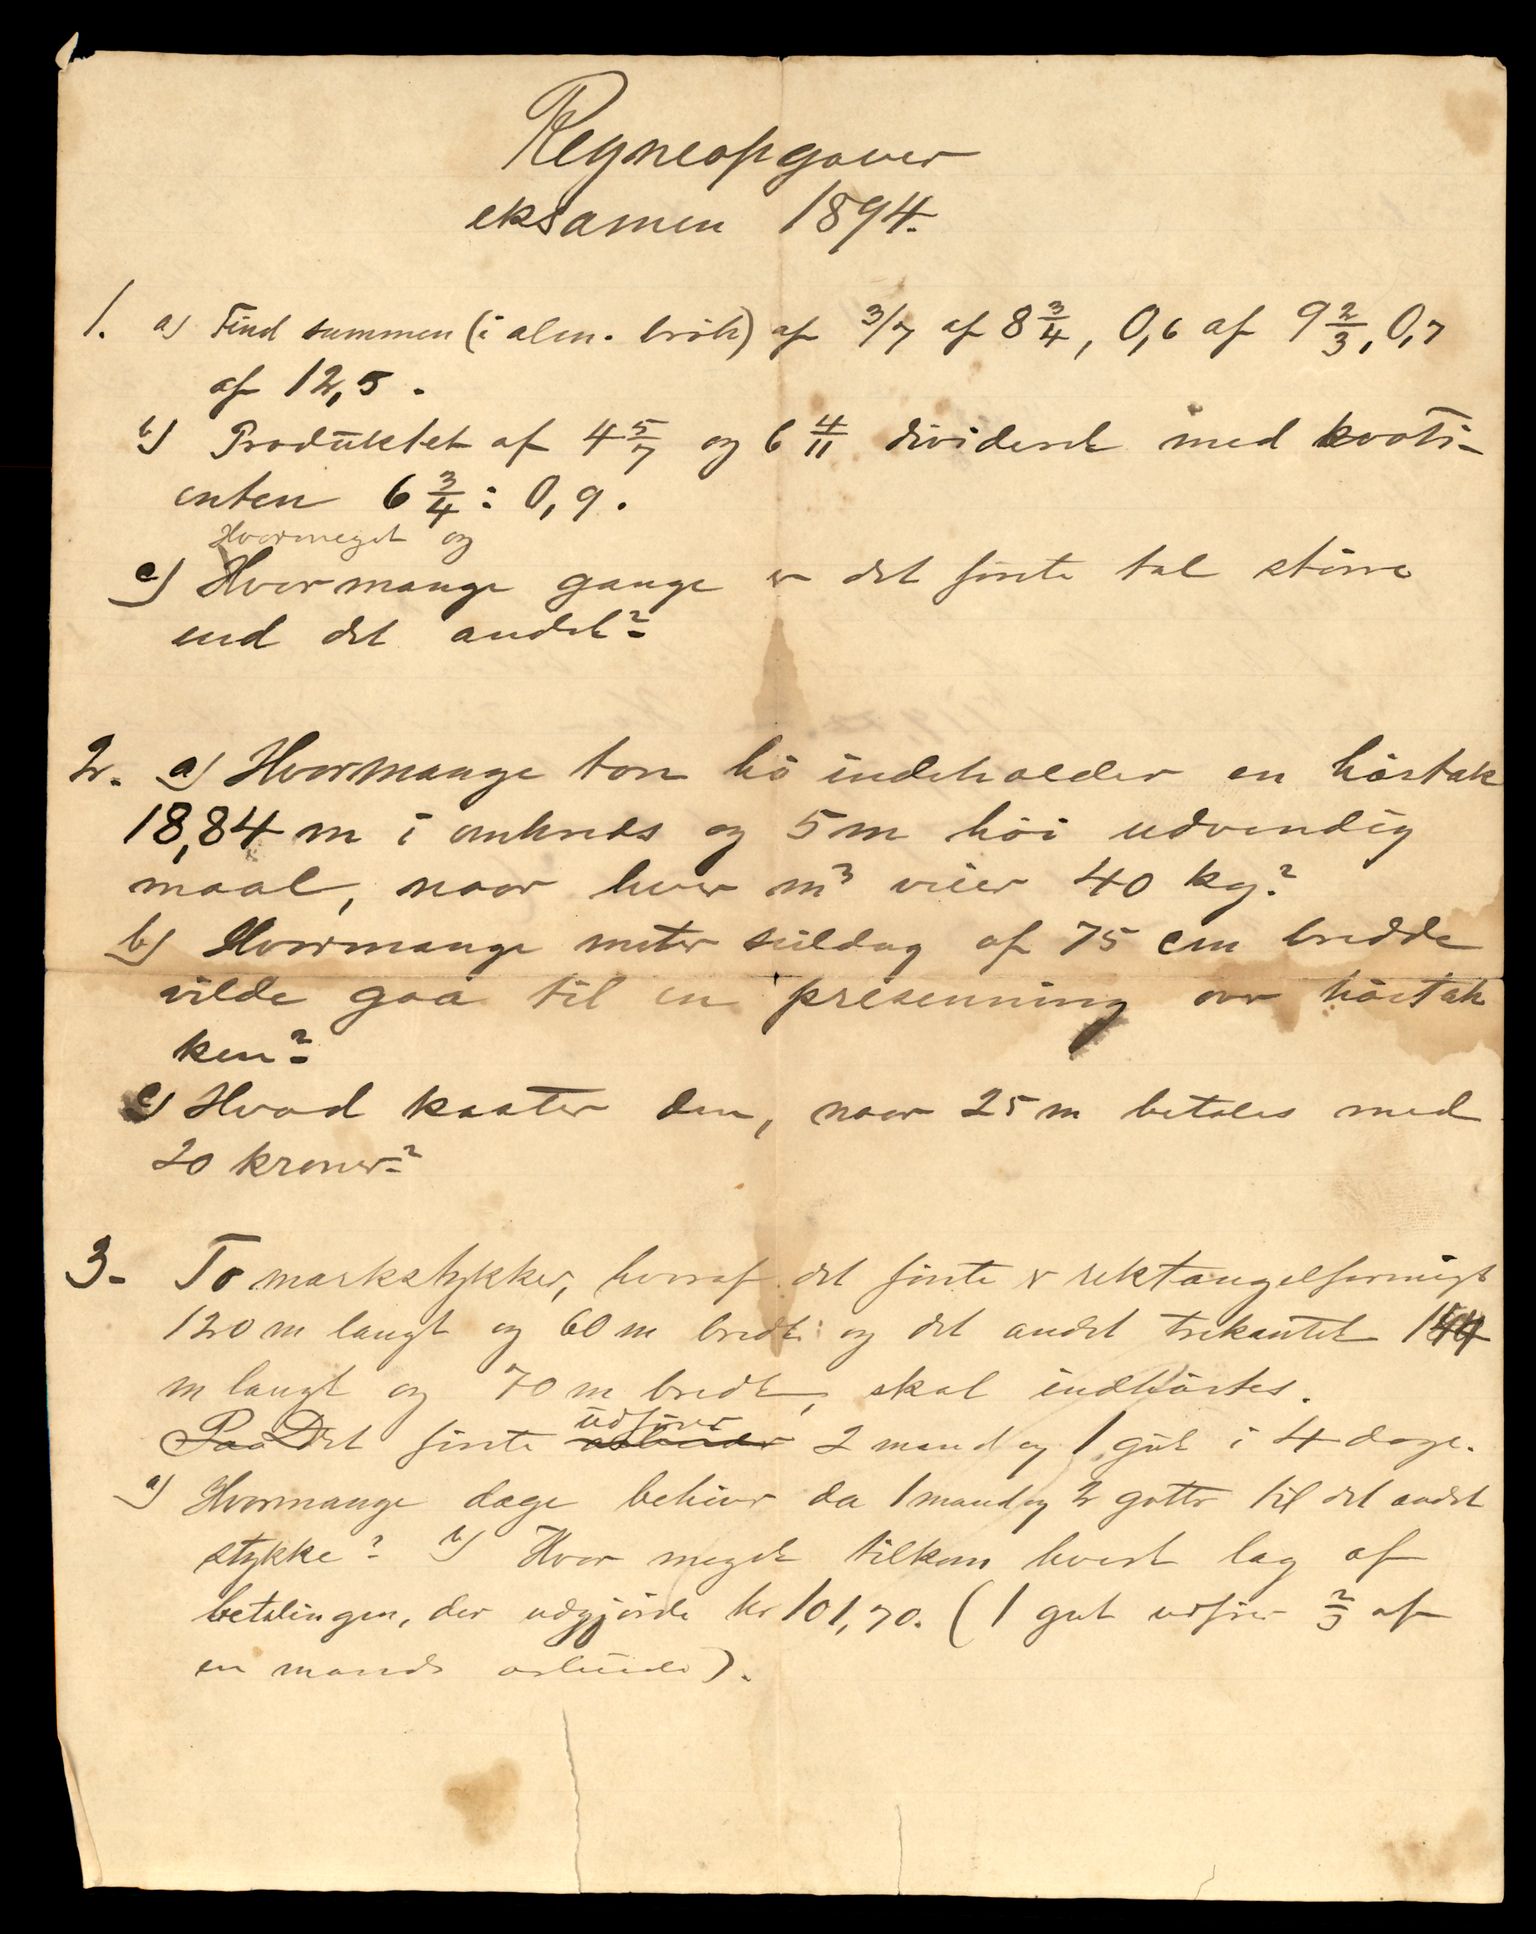 Regneopgaver
eksamen 1894.
1. a) Find summen (i alm. brök) af 3/7 af 8 3/4, 0,6 af 9 2/3, 0,7
af 12,5.
b) Produktet af 4 5/7 og 6 4/11 divideret med kvoti-
enten 6 3/4 : 0,9.
Hvormeget og
c) Hvormange gange er det förste tal större
end det andet?
2. a) Hvormange ton hö indeholder en höstak
18,84 m i omkreds og 5 m höi udvendig
maal, naar hver m³ veier 40 kg?
b) Hvormange meter seildug af 75 cm bredde
vilde gaa til en presenning over höstak
ken?
c) Hvad koster den, naar 25 m betales med
20 kroner?
3. To markstykker, hvoraf det förste er rektangelformigt
120 m langt og 60 m bredt og det andet trekantet 144
m langt og 70 m bredt, skal indhöstes.
Paa Det förste arbeider udförer 2 mand og 1 gut i 4 dage.
a) Hvormange dage behöver da 1 mand og 2 gutter til det andet
stykke? b) Hvor meget tilkom hvert lag af
betalingen, der udgjorde kr 101,70. (1 gut udförer 2/3 af
en mands arbeide).